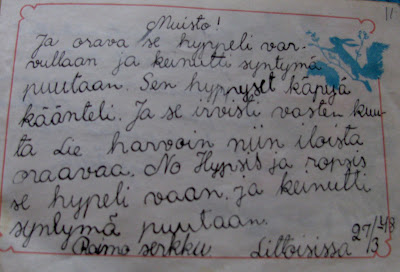 11
Muisto!
Ja orava se hyppeli var-
vullaan ja keinutti syntymä
puutaan. Sen hyppyset käpyjä
käänteli. Ja se irvisti vasten kuu-
ta Lie harvoin niin iloista
oraavaa. No Hypsis ja ropsis
se hypeli vaan. ja keinutti
syntymä puutaan.
27/18
Raimo serkku Littoisissa 13